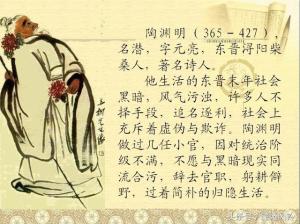 陶渊明(365-427),
名潜,字元亮,东晋浔阳柴
桑人,著名诗人。
他生活的东晋末年社会
黑暗,风气污浊,许多人不
择手段,追名逐利,社会上
充斥着虚伪与欺诈。陶渊明
做过几任小官,因对统治阶
级不满,不愿与黑暗现实同
流合污,辞去官职,躬耕僻
野,过着简朴的归隐生活。